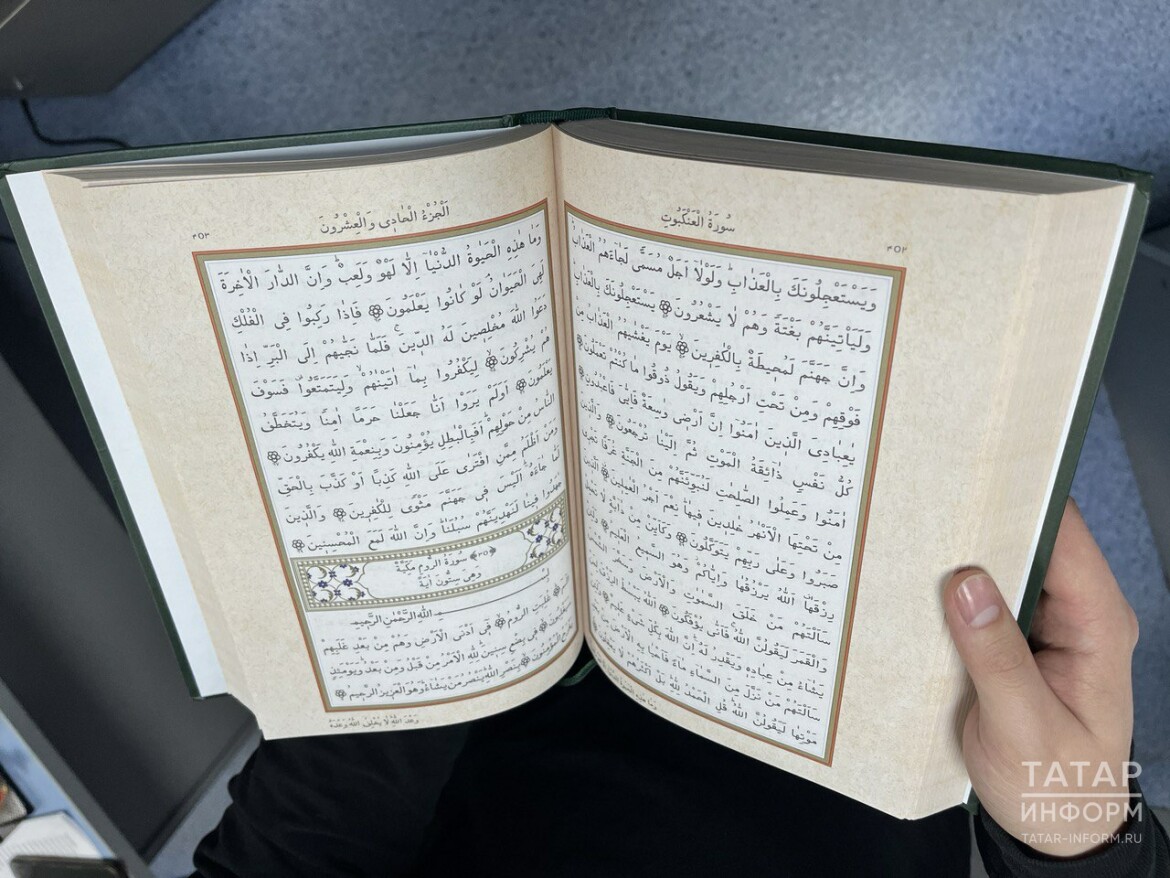 سُورَةُ الْعَنْكَبُوتِ
وَيَسْتَعْجِلُونَكَ بِالْعَذَابِۜ وَلَوْلَٓا اَجَلٌ مُسَمًّى لَجَٓاءَهُمُ الْعَذَابُ
وَلَيَأْتِيَنَّهُمْ بَغْتَةً وَهُمْ لَا يَشْعُرُونَ ۞ يَسْتَعْجِلُونَكَ بِالْعَذَابِ
وَاِنَّ جَهَنَّمَ لَمُحِيطَةٌ بِالْكَافِرِينَ ۞ يَوْمَ يَغْشٰيهُمُ الْعَذَابُ مِنْ
فَوْقِهِمْ وَمِنْ تَحْتِ اَرْجُلِهِمْ وَيَقُولُ ذُوقُوا مَا كُنْتُمْ تَعْمَلُونَ ۞
يَا عِبَادِيَ الَّذِينَ اٰمَنُٓوا اِنَّ اَرْضِي وَاسِعَةٌ فَاِيَّايَ فَاعْبُدُونِ ۞
كُلُّ نَفْسٍ ذَٓائِقَةُ الْمَوْتِ ثُمَّ اِلَيْنَا تُرْجَعُونَ ۞ وَالَّذِينَ
اٰمَنُوا وَعَمِلُوا الصَّالِحَاتِ لَنُبَوِّئَنَّهُمْ مِنَ الْجَنَّةِ غُرَفًا تَجْرِي
مِنْ تَحْتِهَا الْاَنْهَارُ خَالِدِينَ فِيهَا نِعْمَ اَجْرُ الْعَامِلِينَ ۞ اَلَّذِينَ
صَبَرُوا وَعَلٰى رَبِّهِمْ يَتَوَكَّلُونَ ۞ وَكَاَيِّنْ مِنْ دَٓابَّةٍ لَا تَحْمِلُ
رِزْقَهَا اَللّٰهُ يَرْزُقُهَا وَاِيَّاكُمْ وَهُوَ السَّمِيعُ الْعَلِيمُ ۞ وَلَئِنْ
سَاَلْتَهُمْ مَنْ خَلَقَ السَّمٰوَاتِ وَالْاَرْضَ وَسَخَّرَ الشَّمْسَ
وَالْقَمَرَ لَيَقُولُنَّ اللّٰهُ فَاَنّٰى يُؤْفَكُونَ ۞ اَللّٰهُ يَبْسُطُ الرِّزْقَ لِمَنْ
يَشَٓاءُ مِنْ عِبَادِهِ وَيَقْدِرُ لَهُ اِنَّ اللّٰهَ بِكُلِّ شَيْءٍ عَلِيمٌ ۞
سَاَلْتَهُمْ مَنْ نَزَّلَ مِنَ السَّمَٓاءِ مَٓاءً فَاَحْيَا بِهِ الْاَرْضَ مِنْ
مَوْتِهَا لَيَقُولُنَّ اللّٰهُ قُلِ الْحَمْدُ لِلّٰهِ بَلْ اَكْثَرُهُمْ لَا يَعْقِلُونَ
اَلْجُزْءُ الْحَادِي وَالْعِشْرُونَ
وَمَا هٰذِهِ الْحَيٰوةُ الدُّنْيَٓا اِلَّا لَهْوٌ وَلَعِبٌ وَاِنَّ الدَّارَ الْاٰخِرَةَ
لَهِيَ الْحَيَوَانُ لَوْ كَانُوا يَعْلَمُونَ ۞ فَاِذَا رَكِبُوا فِي الْفُلْكِ
دَعَوُا اللّٰهَ مُخْلِصِينَ لَهُ الدِّينَ فَلَمَّا نَجّٰيهُمْ اِلَى الْبَرِّ اِذَا
هُمْ يُشْرِكُونَ ۞ لِيَكْفُرُوا بِمَٓا اٰتَيْنَاهُمْ وَلِيَتَمَتَّعُوا فَسَوْفَ
يَعْلَمُونَ ۞ اَوَلَمْ يَرَوْا اَنَّا جَعَلْنَا حَرَمًا اٰمِنًا وَيُتَخَطَّفُ
النَّاسُ مِنْ حَوْلِهِمْ اَفَبِالْبَاطِلِ يُؤْمِنُونَ وَبِنِعْمَةِ اللّٰهِ يَكْفُرُونَ ۞
وَمَنْ اَظْلَمُ مِمَّنِ افْتَرٰى عَلَى اللّٰهِ كَذِبًا اَوْ كَذَّبَ بِالْحَقِّ
لَمَّا جَٓاءَهُ اَلَيْسَ فِي جَهَنَّمَ مَثْوًى لِلْكَافِرِينَ ۞ وَالَّذِينَ
جَاهَدُوا فِينَا لَنَهْدِيَنَّهُمْ سُبُلَنَا وَاِنَّ اللّٰهَ لَمَعَ الْمُحْسِنِينَ ۞
سُورَةُ الرُّومِ مَكِّيَّةٌ
وَهِيَ سِتُّونَ اٰيَةً
بِسْــــمِ اللّٰهِ الرَّحْمٰنِ الرَّحِيمِ
غُلِبَتِ الرُّومُ ۞ فِٓي اَدْنَى الْاَرْضِ وَهُمْ مِنْ بَعْدِ غَلَبِهِمْ
سَيَغْلِبُونَ ۞ فِي بِضْعِ سِنِينَ لِلّٰهِ الْاَمْرُ مِنْ قَبْلُ وَمِنْ بَعْدُ وَيَوْمَئِذٍ
يَفْرَحُ الْمُؤْمِنُونَ ۞ بِنَصْرِ اللّٰهِ يَنْصُرُ مَنْ يَشَٓاءُ وَهُوَ الْعَزِيزُ الرَّحِيمُ ۞
وَعْدَ اللّٰهِ لَا يُخْلِفُ اللّٰهُ وَعْدَهُ
ТАТАР
ИНФОРМ
TATAR-INFORM.RU